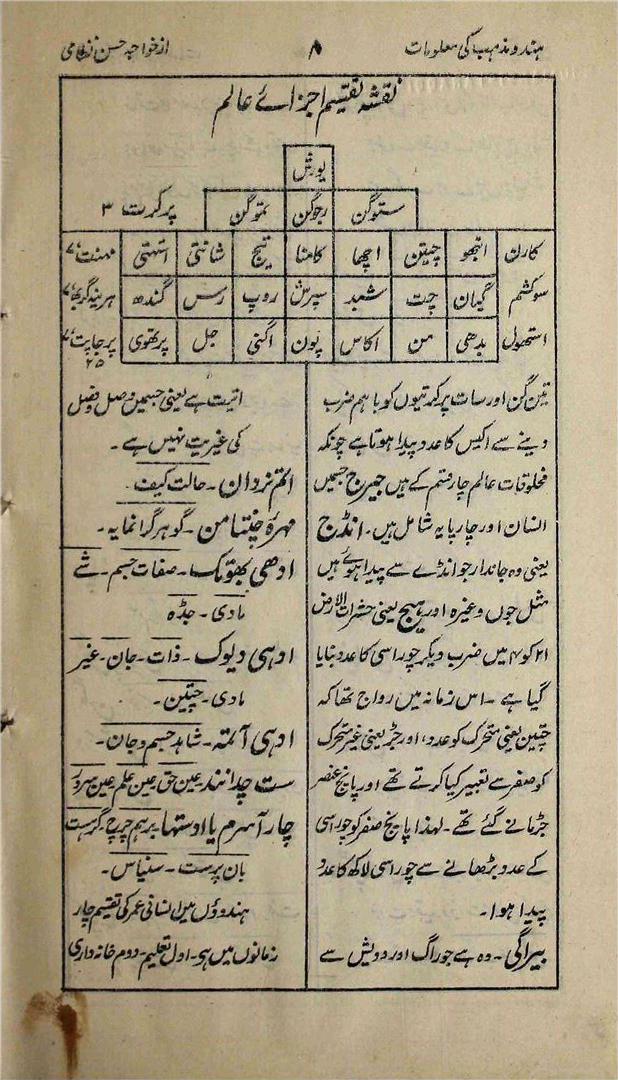 ہندو مذہب کی معلومات ۸ از خواجہ حسن نظامی
نقشہ تقسیم اجزائے عالم
پورش
ستوگن رجوگن تموگن پرکرت ۳
کارن انبھو چیتن اچھا کامنا تیج شانتی استھتی مہنت ۷
سوکشم گیان چت شبد سپرش روپ رس گندھ ہرنیہ گربھ ۷
استھول بدھی من اکاس پون اگنی جل پرتھوی پرجاپت ۷
۲۵
تین گن اور سات پرکرتیوں کو باہم ضرب
دینے سے اکیس کا عدد پیدا ہوتا ہے چونکہ
مخلوقات عالم چار قسم کے ہیں جیرج جسمیں
انسان اور چارپایہ شامل ہیں۔ انڈج
یعنی وہ جاندار جو انڈے سے پیدا ہوئے ہیں
مثل جوں وغیرہ اور بیج یعنی حشرات الارض
۲۱ کو ۴ میں ضرب دیکر چوراسی کا عدد بنایا
گیا ہے۔ اس زمانہ میں رواج تھا کہ
چتین یعنی متحرک کو عدد، اور جڑ یعنی غیر متحرک
کو صفر سے تعبیر کیا کرتے تھے اور پانچ عنصر
جڑ مانے گئے تھے۔ لہذا پانچ صفر کو چوراسی
کے عدد بڑھانے سے چوراسی لاکھ کا عدد
پیدا ہوا۔
بیراگی۔ وہ ہے جو راگ اور دویش سے
اتیت ہے یعنی جسمیں وصل و فصل
کی غیریت نہیں ہے۔
اتم نزدان۔ حالت کیف۔
مہرہ چنتامن۔ گوہر گرانمایہ۔
ادھی بھوتک۔ صفات جسم۔ شے
مادی۔ جڈہ
ادہی دیوک۔ ذات۔ جان۔ غیر
مادی۔ چتین۔
ادہی آتمہ۔ شاہد جسم و جان۔
ست چدانند عین حق عین علم عین سرور
چار آسرم یا اوستھا برہم چرچ۔ گرہست
بان پرست۔ سنیاس۔
ہندوؤں میں انسانی عمر کی تقسیم چار
زمانوں میں ہی۔ اول تعلیم۔ دوم خانہ داری